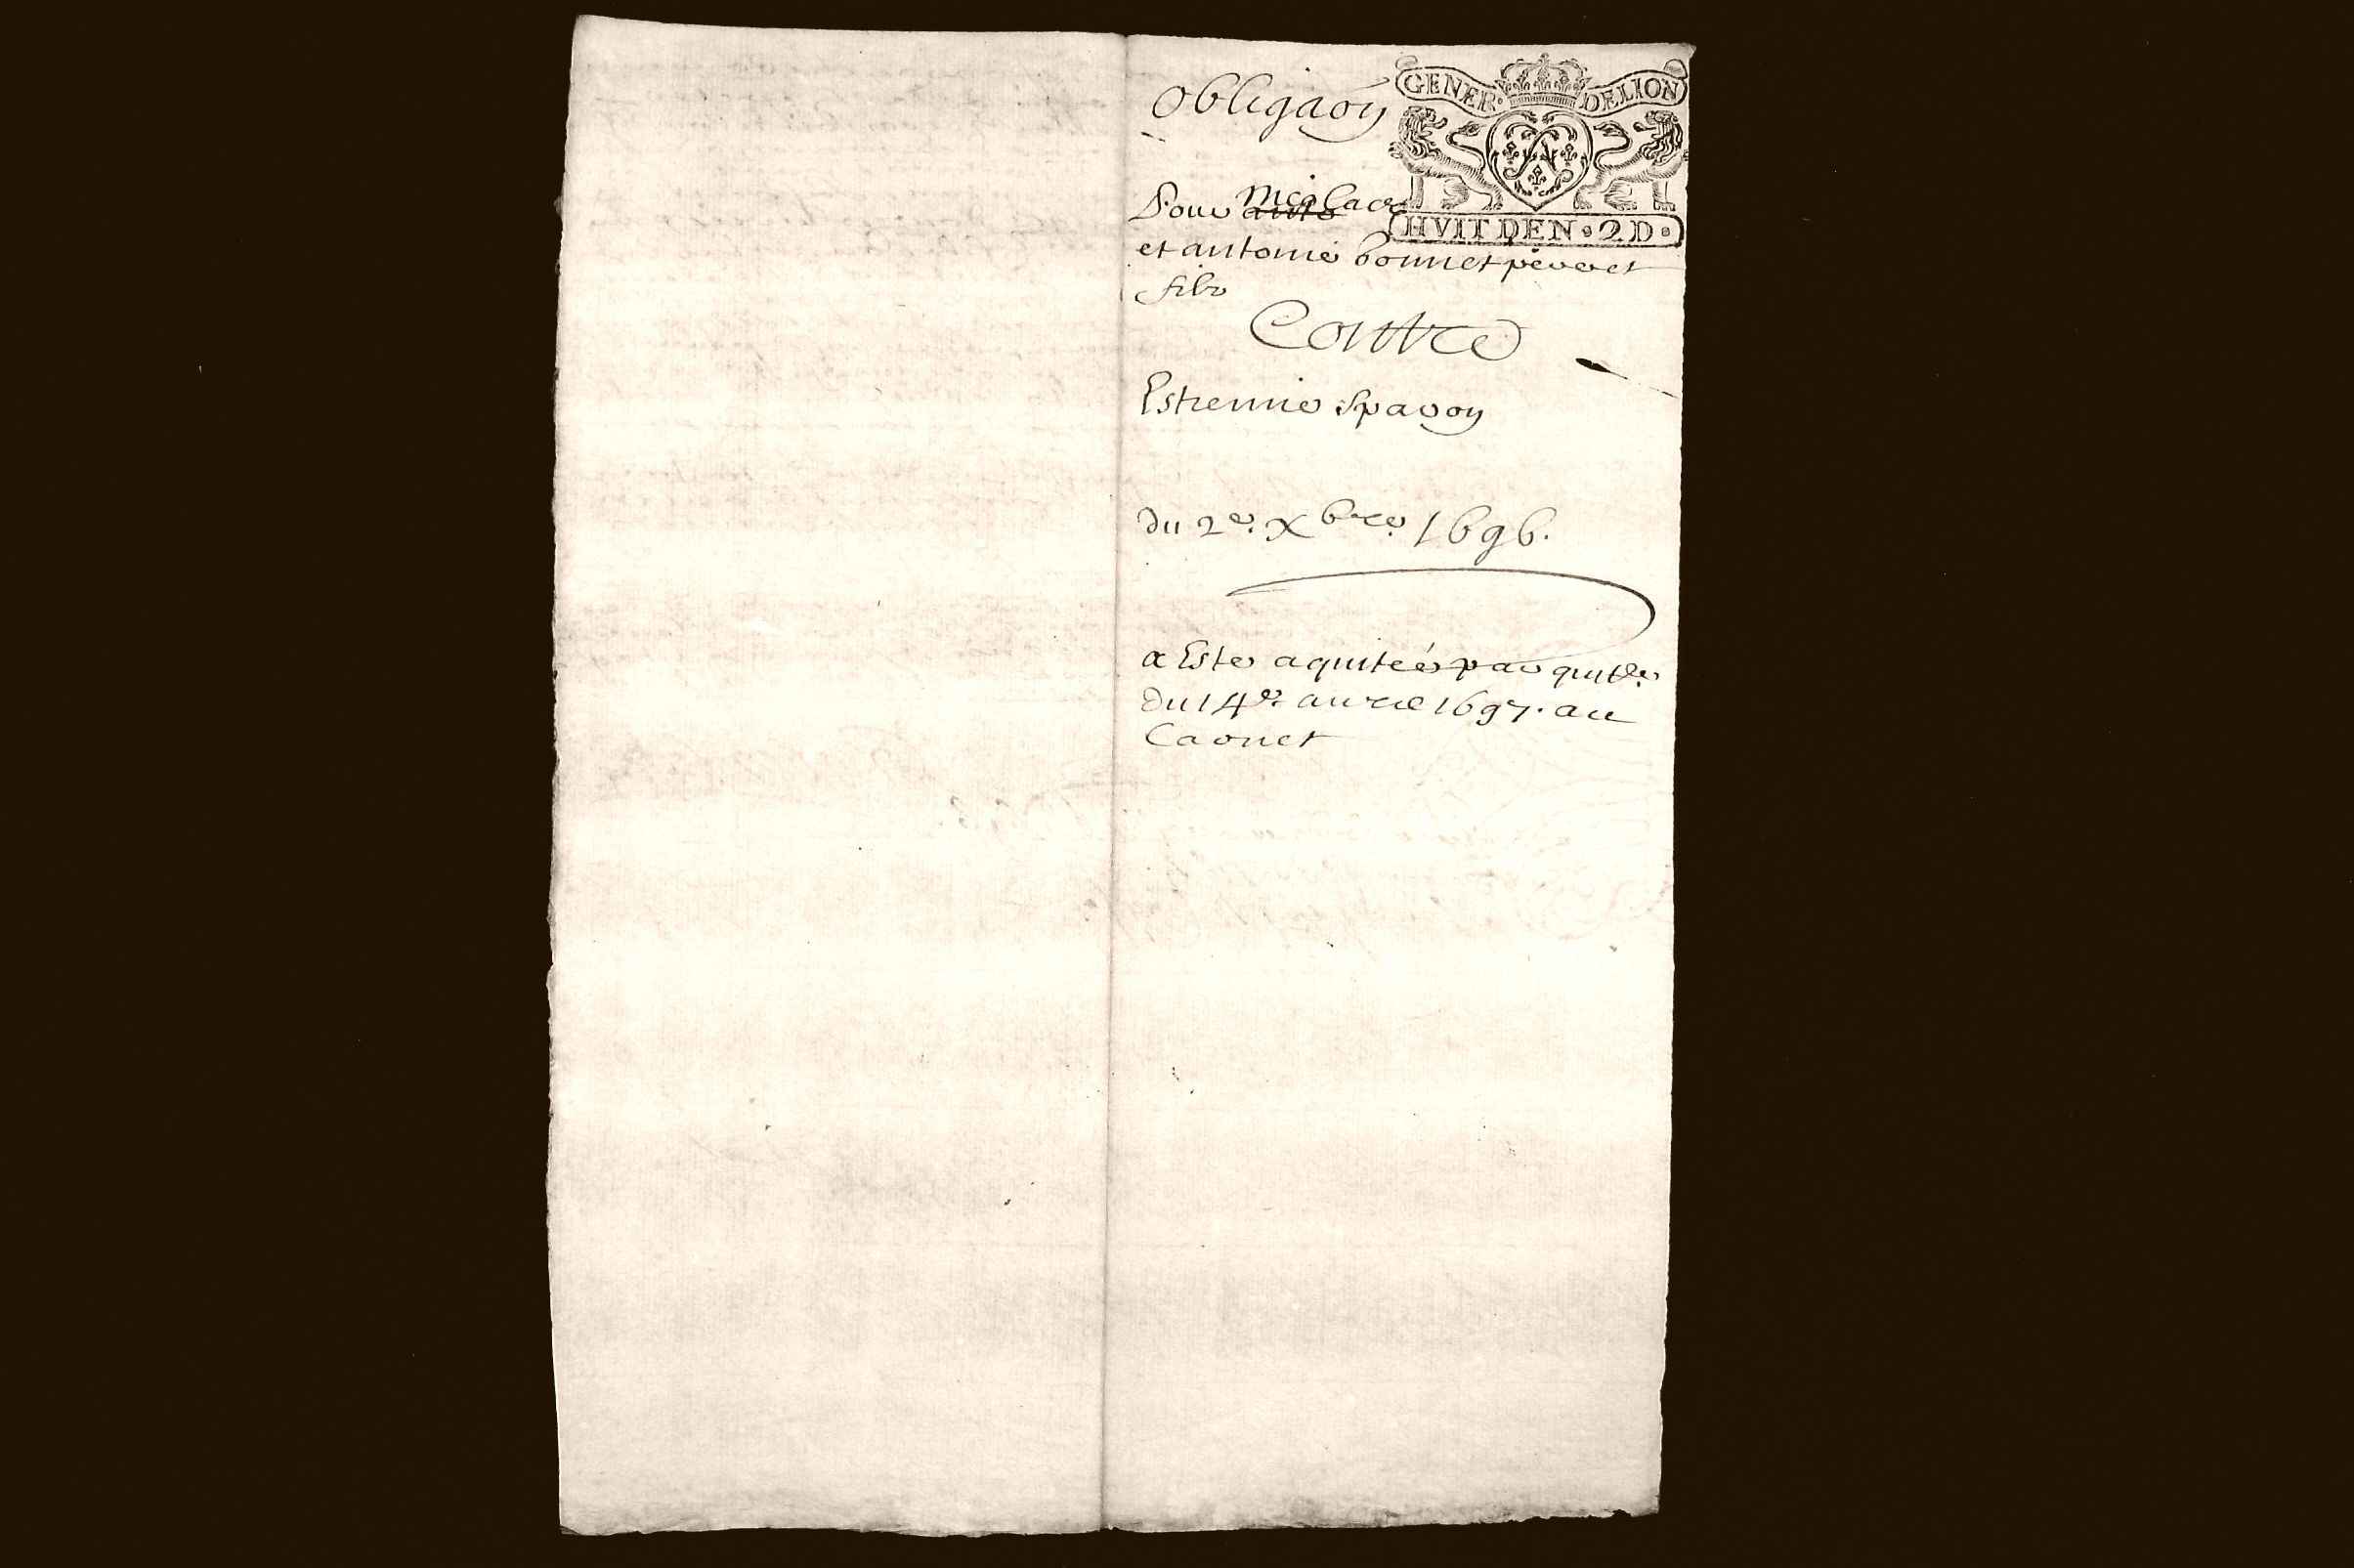 Obligaon
GENER. DE LION
HVIT DEN. 2 D.
Pour anto Nicolas
et antoine bonnet pere et
fils
Contre
Estienne Sparon
du 2e. Xbre. 1696.
a Este aquiteé par quitce.
du 14e. auril 1697. au
Carnet